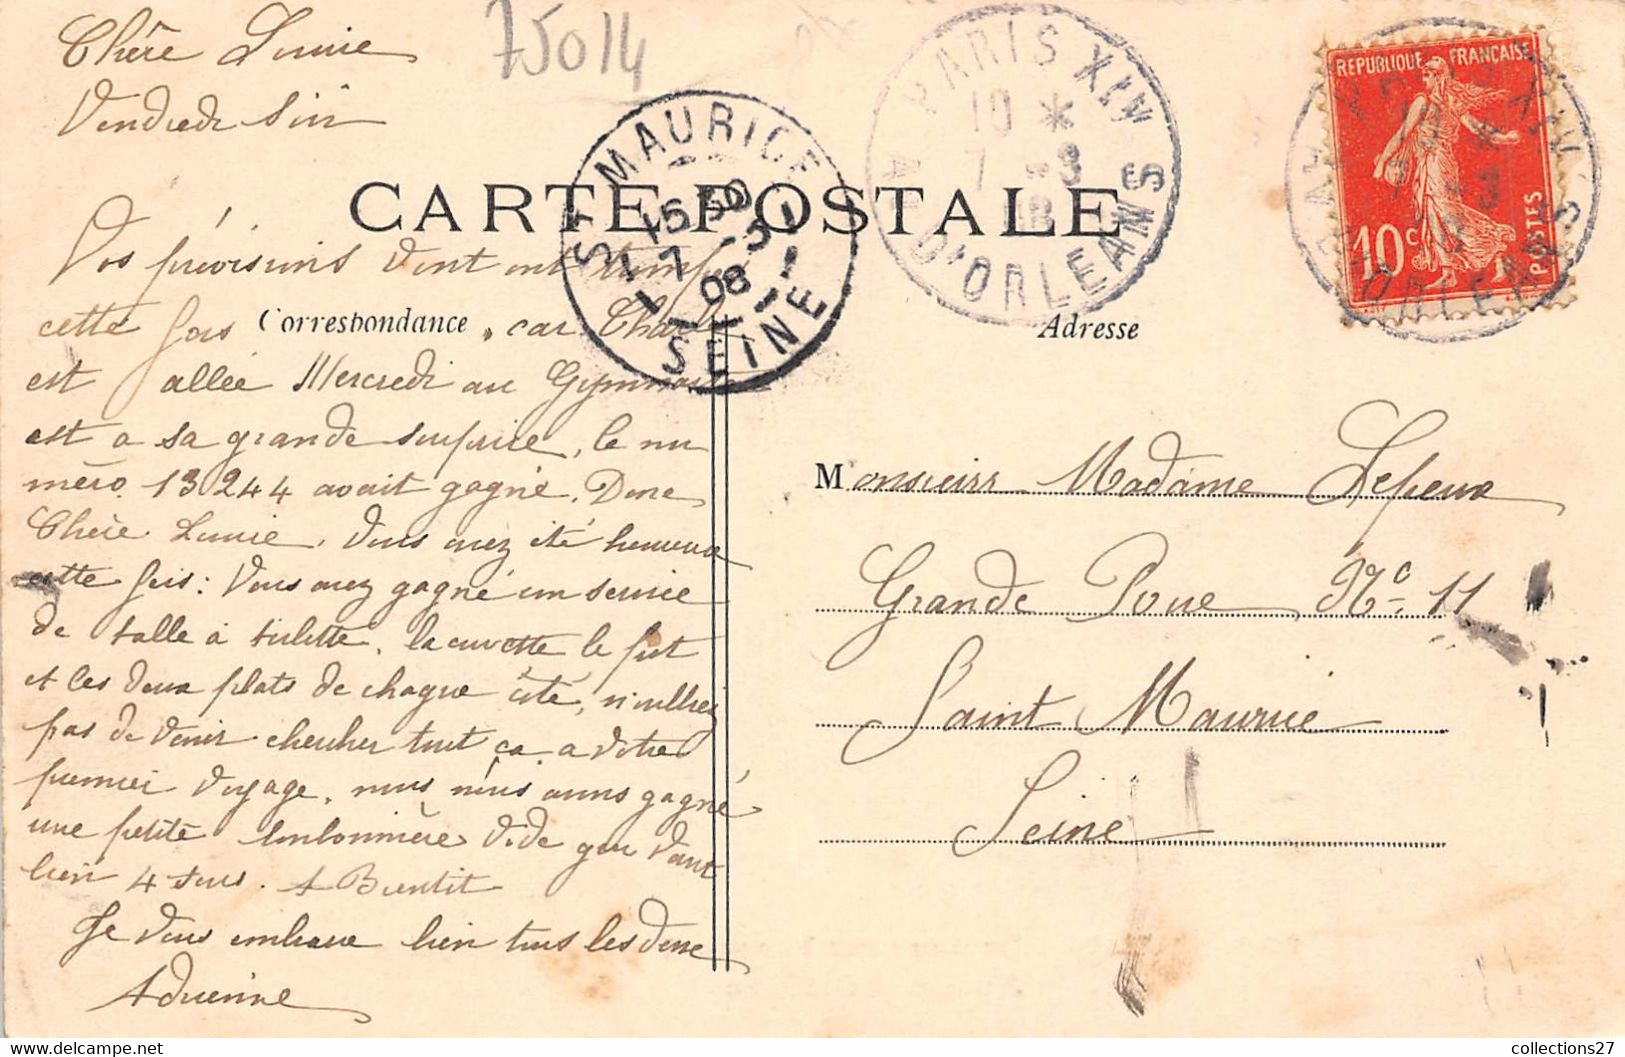 Chère Lucie
75014
Vendredi soir
CARTE POSTALE
Correspondance
Adresse
ST MAURICE
15 50
7 -3
08
SEINE
PARIS XIV
10 *
7 -3
08
AV. D'ORLEANS
REPUBLIQUE FRANÇAISE
10c
POSTES
Vos prévisions vont
cette fois, car
est allée Mercredi au
est a sa grande surprise, le nu
méro 13244 avait gagné, Donc
Chère Lucie, Vous avez été heureuse
cette fois: Vous avez gagné un service
de salle à toilette, la cuvette le pot
et les deux plats de chaque côté, n'oubliez
pas de venir chercher tout ça a votre
premier voyage, nous nous avons gagné
une petite bonbonnière vide qui vaut
bien 4 sous. A Bientôt
Je vous embrasse bien tous les deux
Adrienne
Monsieur Madame Lepeux
Grande Rue No 11
Saint Maurice
Seine
collections27